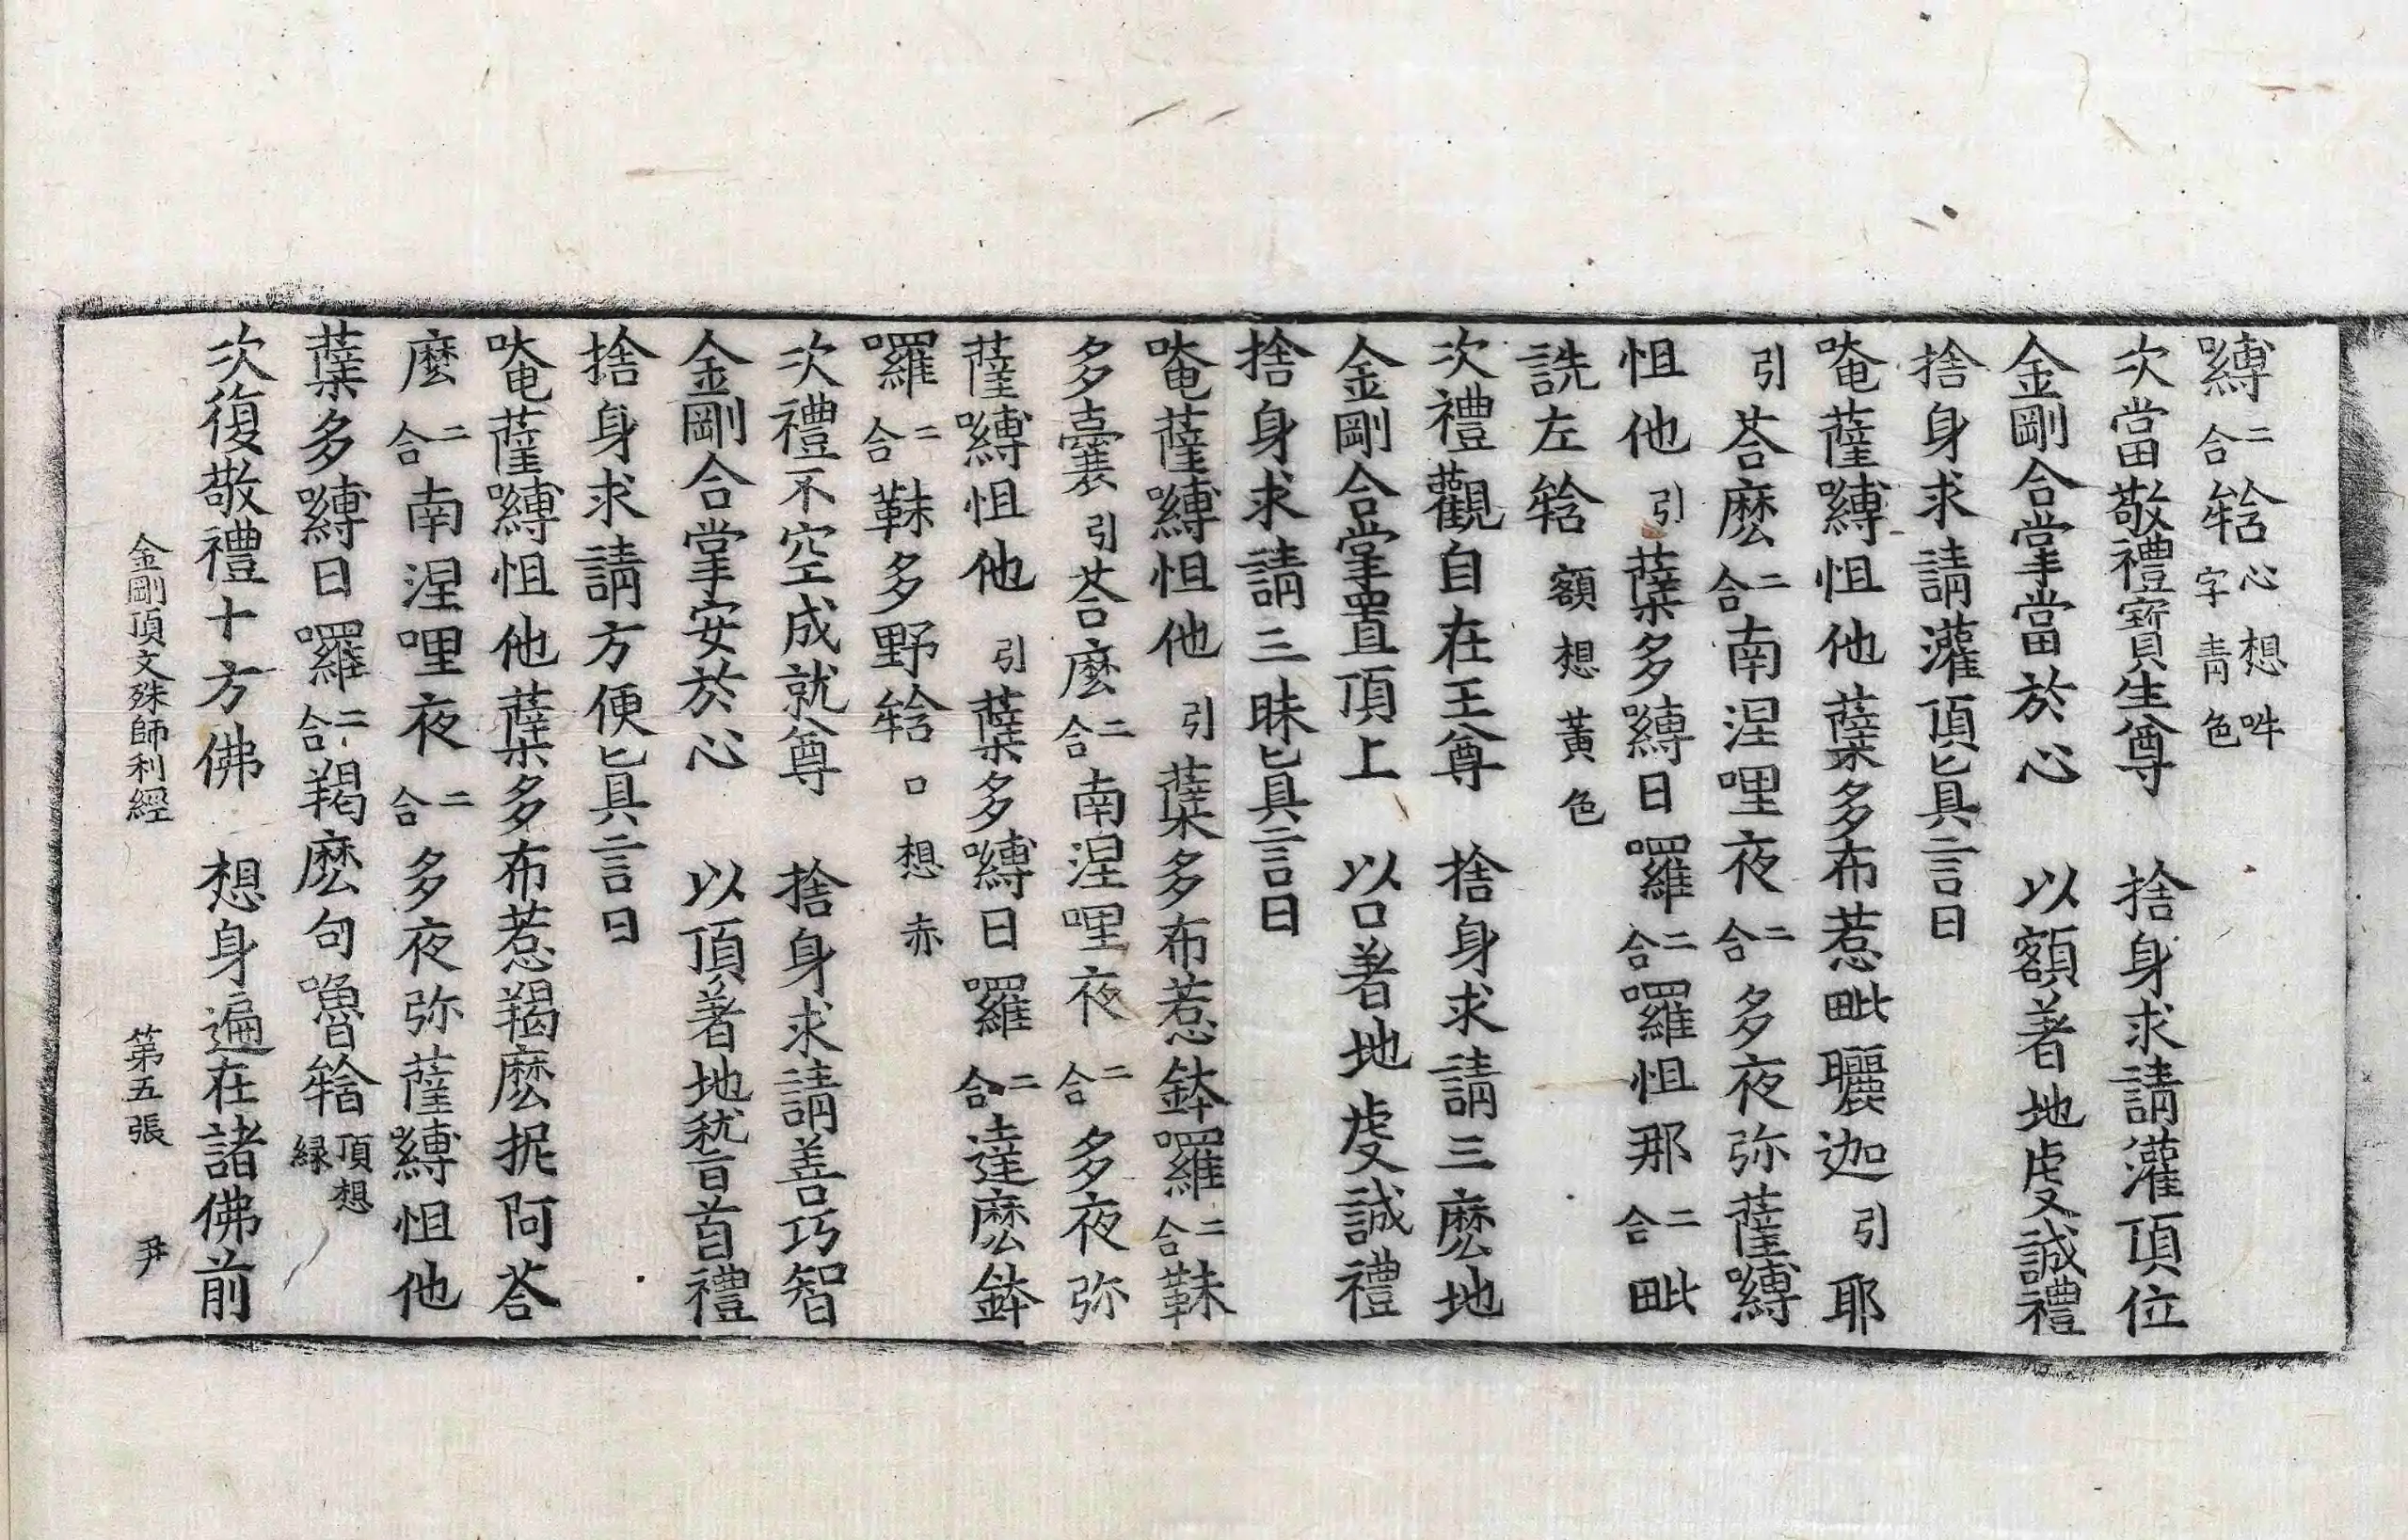 嚩二合牿心想吽字青色
次當敬禮寶生尊　捨身求請灌頂位
金剛合掌當於心　以額著地虔誠禮
捨身求請灌頂眞言曰
唵薩嚩怛他蘖多布惹毗曬迦引耶
引荅麽二合南涅哩夜二合多夜弥薩嚩
怛他引蘖多嚩日囉二合囉怛那二合毗
詵左牿額想黃色
次禮觀自在王尊　捨身求請三麽地
金剛合掌置頂上　以口著地虔誠禮
捨身求請三昧眞言曰
唵薩嚩怛他引蘖多布惹鉢囉二合靺
多囊引荅麽二合南涅哩夜二合多夜弥
薩嚩怛他引蘖多嚩日囉二合達麽鉢
囉二合靺多野牿口想赤
次禮不空成就尊　捨身求請善巧智
金剛合掌安於心　以頂著地稽首禮
捨身求請方便眞言曰
唵薩嚩怛他蘖多布惹羯麽抳阿荅
麽二合南涅哩夜二合多夜弥薩嚩怛他
蘖多嚩日囉二合羯麽句嚕牿頂想緑
次復敬禮十方佛　想身遍在諸佛前
金剛頂文殊師利經　第五張　尹